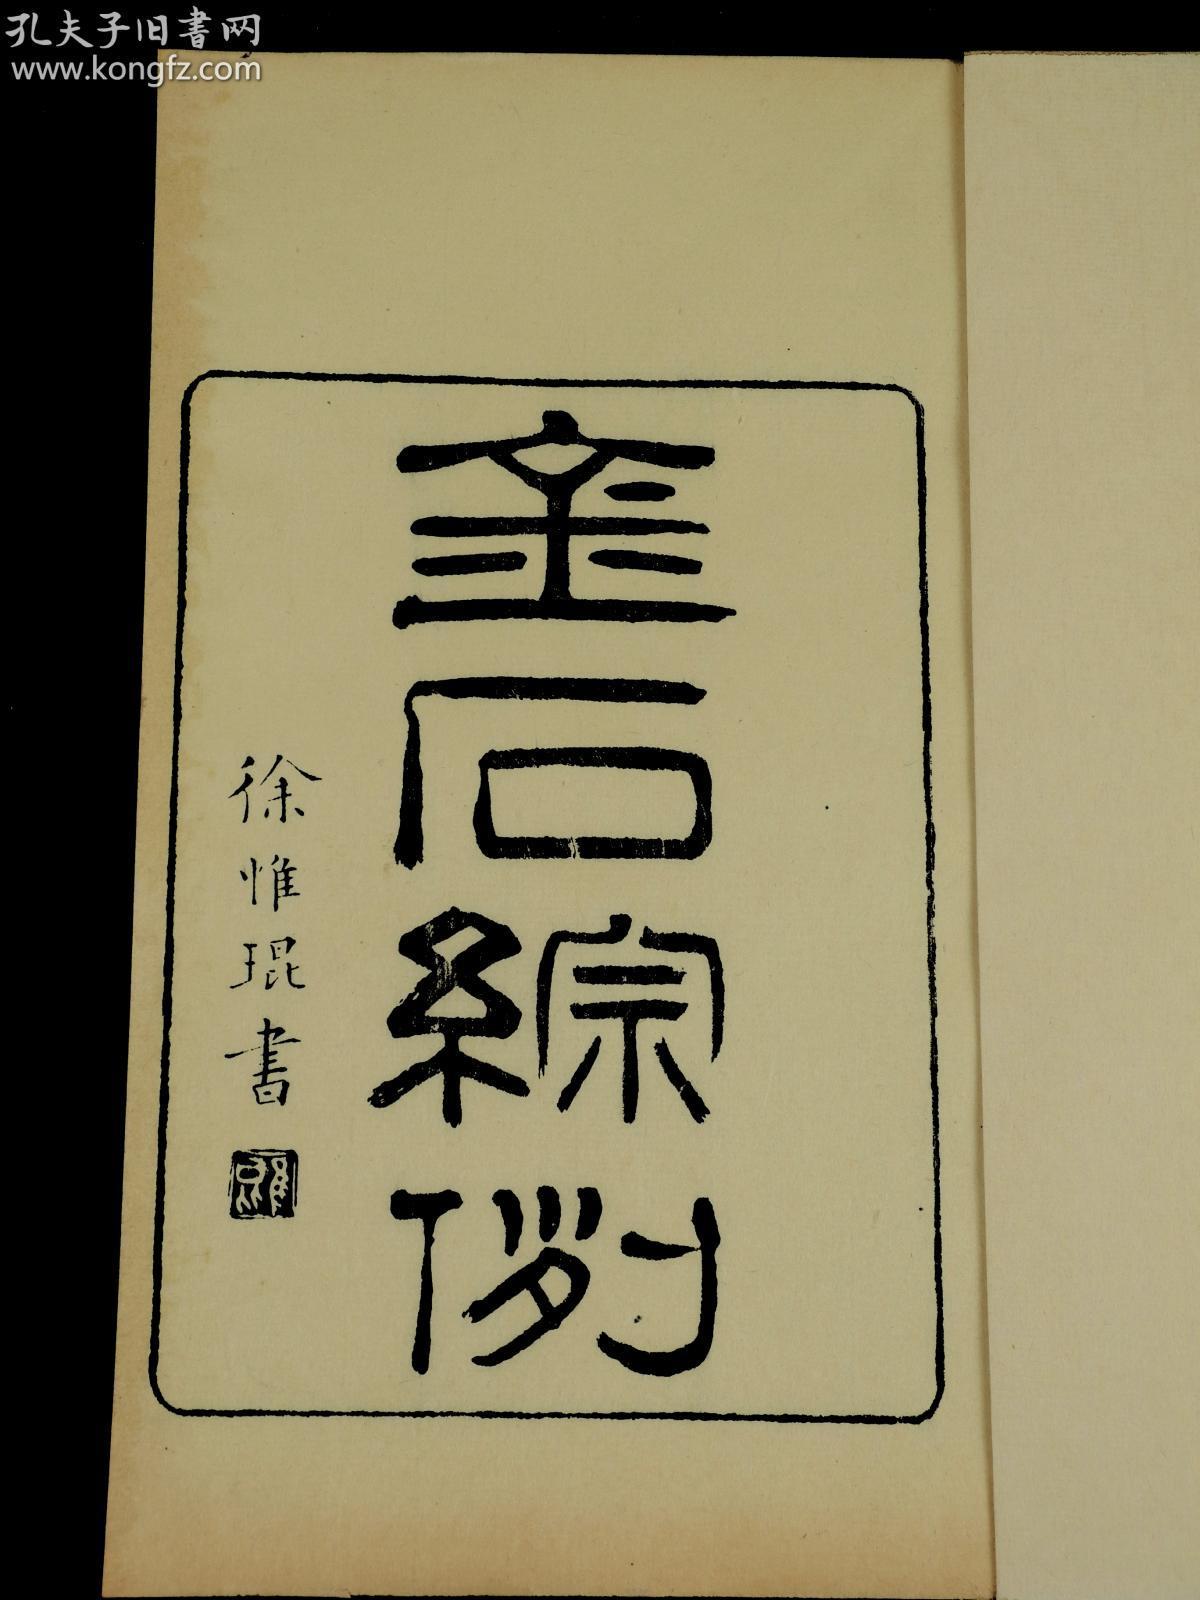 孔夫子旧書网
www.kongfz.com
金石綜例
徐惟琨書